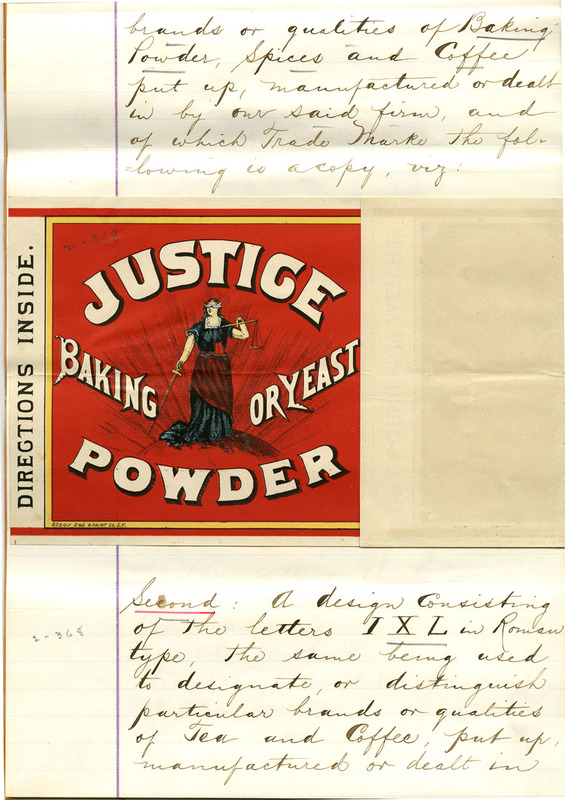 brands or qualities of Baking
Powder, Spices and Coffee
put up, manufactured or dealt
in by our said firm, and
of which Trade Marke the fol-
lowing is a copy, viz:
2-368
DIRECTIONS INSIDE.
JUSTICE
BAKING OR YEAST
POWDER
BOSQUI ENG. & PRINT CO. S.F.
Second: A design Consisting
of the letters I X L in Roman
2-368
type, the same being used
to designate, or distinguish
particular brands or qualities
of Tea and Coffee, put up,
manufactured or dealt in